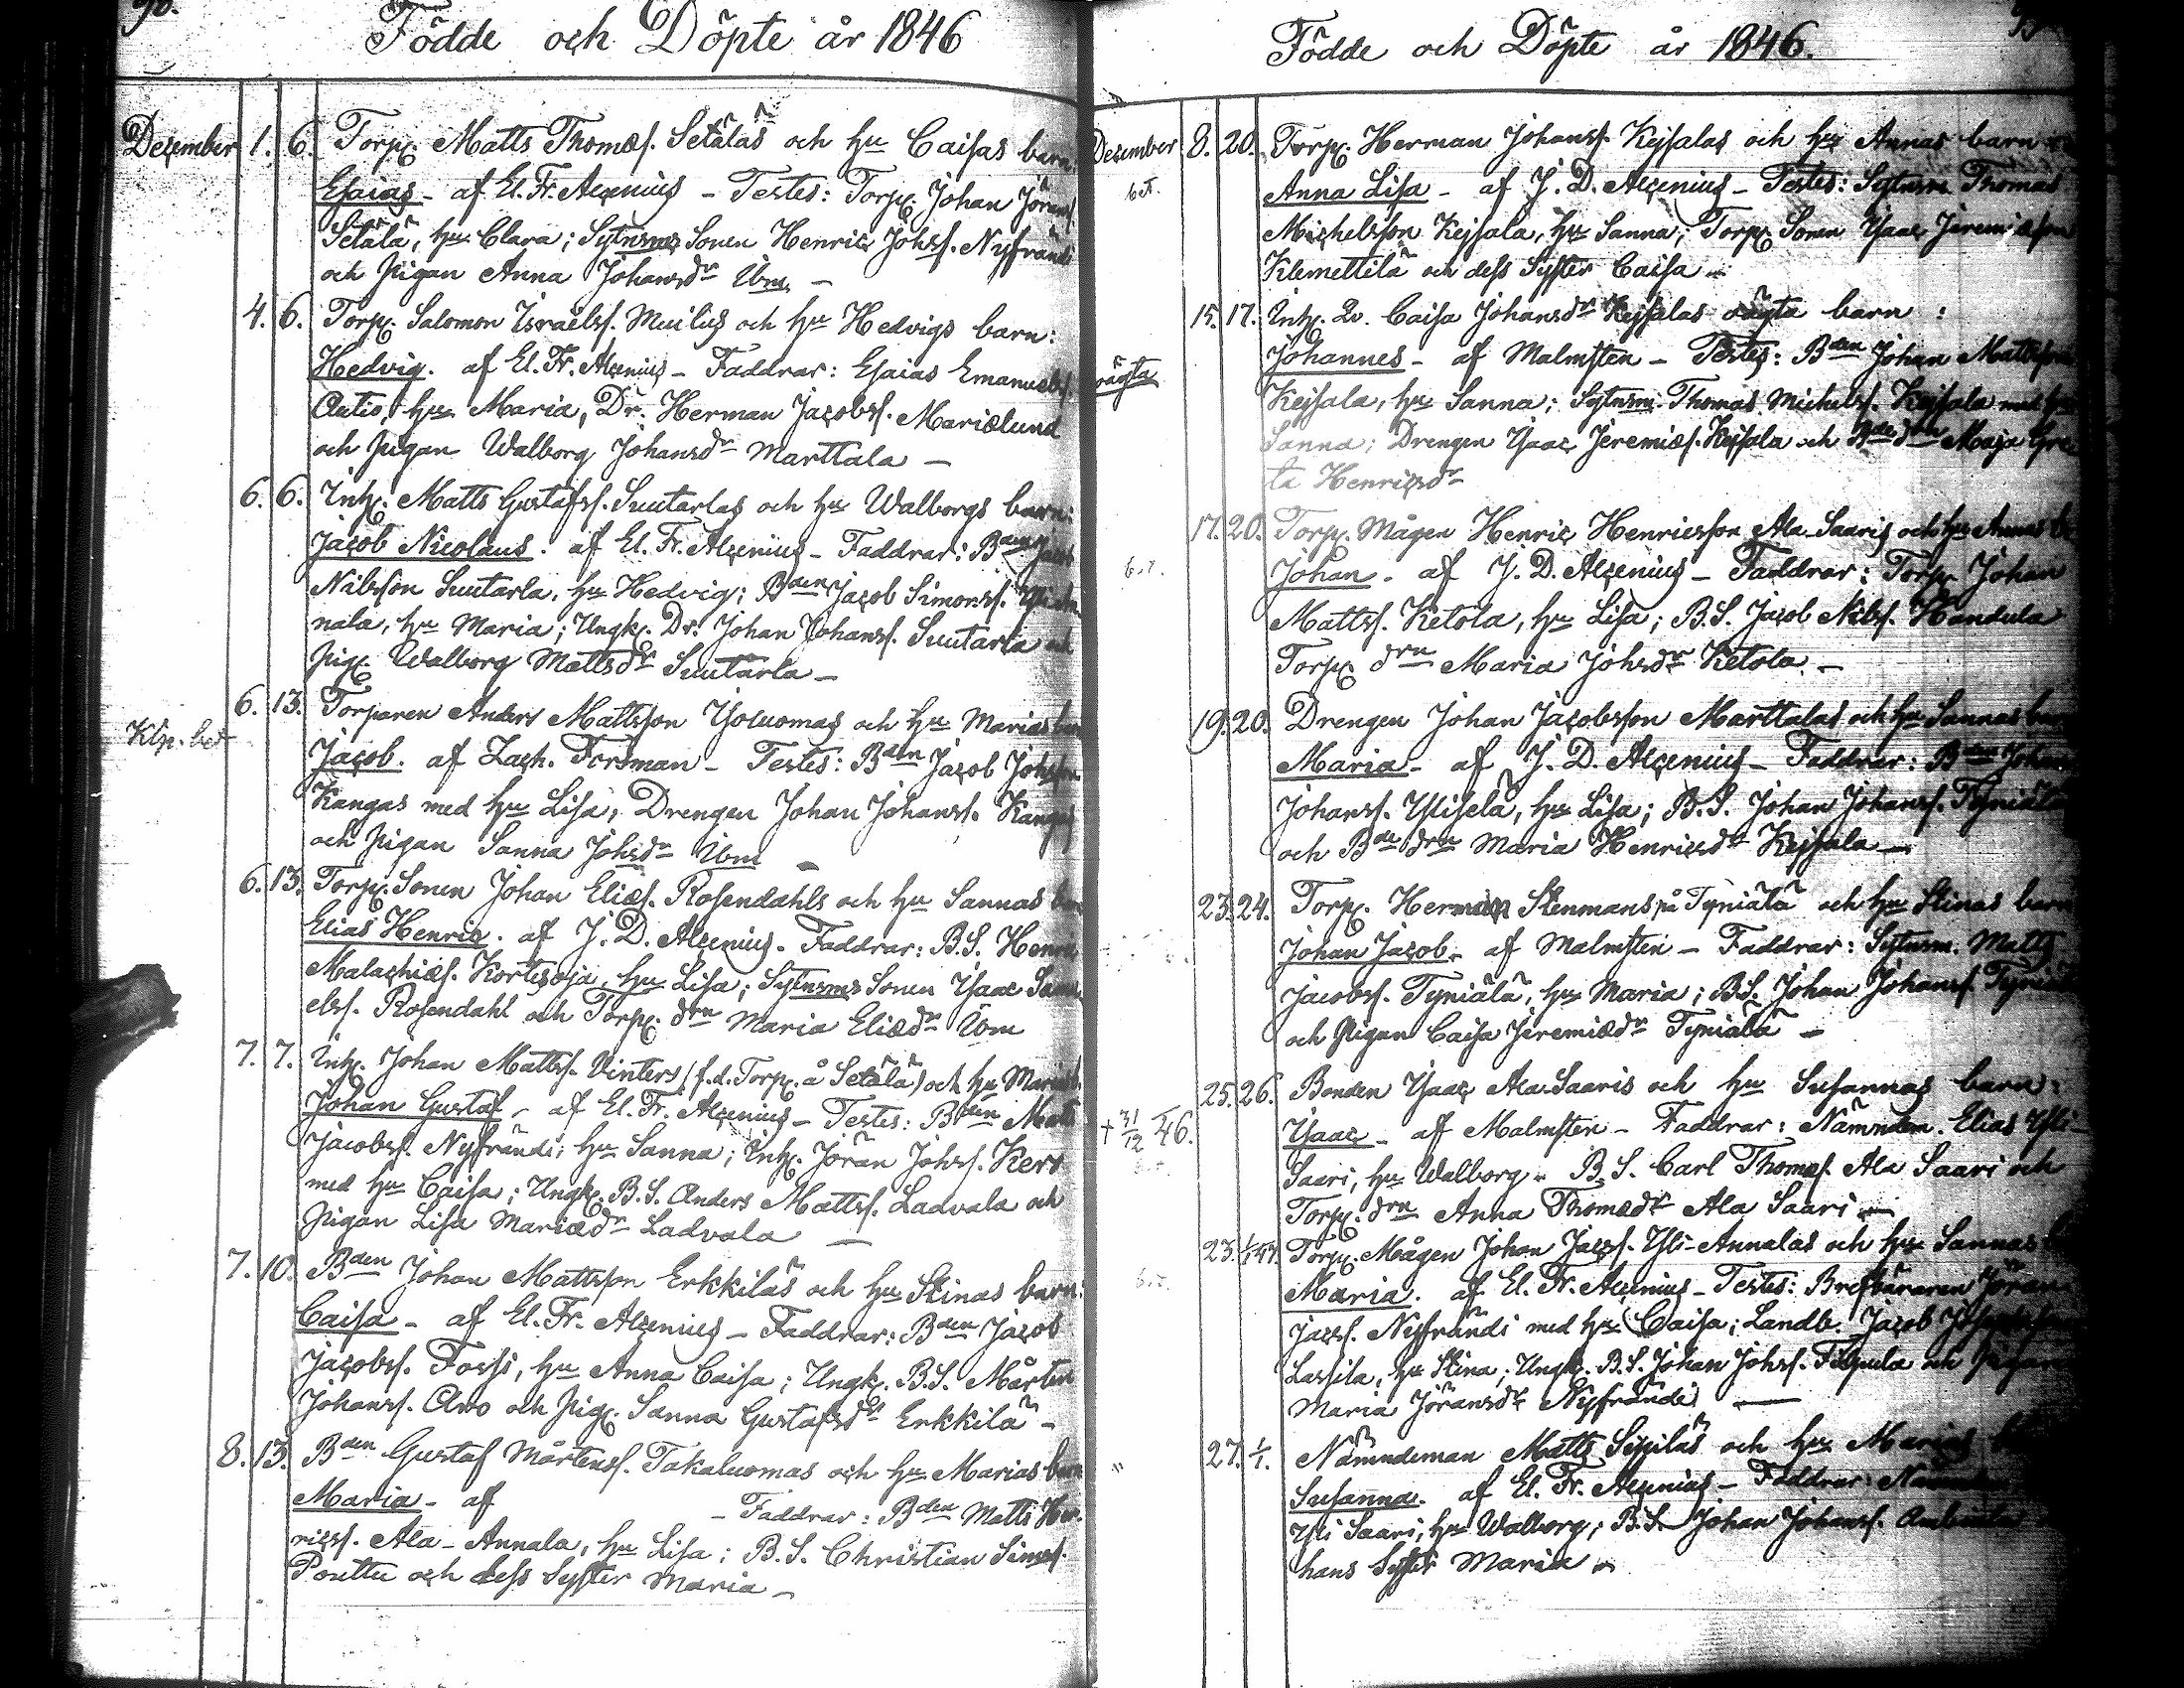 90.
Födde och Döpte år 1846
December 1. 6. Torp. Matts Thomæs. Setäläs och hu Caisas barn
Esaias - af El. Fr. Alcenius - Testes: Torp. Johan Jörans.
Setälä, hu Clara; Sytnsms Sonen Henric Johss. Nyfrändi
och Pigan Anna Johansdr Ibm. -
4. 6. Torp. Salomon Israëlss. Muilus och hu Hedvigs barn:
Hedvig. af El. Fr. Alcenius - Faddrar: Esaias Emanuelss.
Autio, hu Maria, Dr. Herman Jacobss. Marielund
och Pigan Walborg Johansdr Marttala -
6. 6. Inh. Matts Gustafss. Suutarlas och hu Walborgs barn:
Jacob Nicolaus. af El. Fr. Alcenius - Faddrar: Bden
Nilsson Suutarla, hu Hedvig; Bden Jacob Simonss.
nala, hu Maria; Ungk. Dr. Johan Johanss. Suutarla och
Pig. Walborg Mattsdr Suutarla -
6. 13. Torparen Anders Mattsson Yoluomas och hu Marias
Klp. bet
Jacob. af Zach. Forsman - Testes: Bden Jacob
Kangas med hu Lisa; Drengen Johan Johanss. Kangas
och Pigan Sanna Johsdr Ibm -
6. 13. Torp. Sonen Johan Eliæs. Rosendahls och hu Sannas
Elias Henric. af J. D. Alcenius - Faddrar: B.S. Henric
Malachiæs. Kortesoja, hu Lisa; Sytnsms Sonen Ysaac
elss. Rosendahl och Torp. drn Maria Eliædr Ibm
7. 7. Inh. Johan Mattss. Vinters (f.d. Torp. å Setälä) och hu
Johan Gustaf - af El. Fr. Alcenius - Testes: Bden Matts
Jacobss. Nyfrändi, hu Sanna; Inh. Jöran Johss. Kero
med hu Caisa; Ungk. B.S. Anders Mattss. Ladvala och
Pigan Lisa Mariædr Ladvala -
7. 10. Bden Johan Mattsson Erkkiläs och hu Stinas barn:
Caisa - af El. Fr. Alcenius - Faddrar: Bden Jacob
Jacobss. Fossi, hu Anna Caisa; Ungk. B.S. Mårten
Johanss. Aro och Pig. Sanna Gustafsdr Erkkilä -
8. 13. Bden Gustaf Mårtenss. Takaluomas och hu Marias barn
Maria - af - Faddrar: Bden Matts Hen-
ricss. Ala-Annala, hu Lisa; B.S. Christian Simss.
Pouttu och dess Syster Maria -
Födde och Döpte år 1846.
December 8. 20. Torp. Herman Johanss. Kejsalas och hu Annas barn
Anna Lisa - af J. D. Alcenius - Testes: Sytnsm Thomas
Michelsson Kejsala, hu Sanna; Torp. Sonen Ysaac Jeremiæson
Klemettilä och dess Syster Caisa -
15. 17. Inh. Qv. Caisa Johansdr Kejsalas oägta barn:
oägta
Johannes - af Malmsten - Testes: Bden Johan Mattsson
Kejsala, hu Sanna; Sytnsm. Thomas Michelss. Kejsala med hu
Sanna; Drengen Ysaac Jeremiæs. Kejsala och Bde drn Maja Gre
ta Henricsdr
17. 20. Torp. Mågen Henric Henricsson Ala-Saaris och hu Annas
Johan. af J. D. Alcenius - Faddrar: Torp. Johan
Mattss. Ketola, hu Lisa; B.S. Jacob Nilss. Handula
Torp. drn Maria Johsdr Ketola. -
19. 20. Drengen Johan Jacobsson Marttalas och hu Sannas
Maria - af J. D. Alcenius - Faddrar: Bden Johan
Johanss. Yliselä, hu Lisa; B.S. Johan Johanss. Tyniälä
och Bde drn Maria Henricsdr Kejsala -
23. 24. Torp. Herman Stenmans på Tyniälä och hu Stinas barn
Johan Jacob - af Malmsten - Faddrar: Sytnsm. Matts
Jacobss. Tyniälä, hu Maria; B.S. Johan Johanss. Tyniälä
och Pigan Caisa Jeremiædr Tyniälä -
25. 26. Bonden Ysaac Ala-Saaris och hu Susannas barn:
† 31/12 46.
Ysaac - af Malmsten - Faddrar: Nämndem. Elias Yli-
Saari, hu Walborg - B.S. Carl Thomæs. Ala Saari och
Torp. drn Anna Thomædr Ala Saari -
23. 1/1 47. Torp. Mågen Johan Jacss. Yli-Annalas och hu Sannas
Maria. af El. Fr. Alcenius - Testes: Brefbäraren Jöran
Jacss. Nyfrändi med hu Caisa; Landb. Jacob
Lassila, hu Stina; Ungk. B.S. Johan Johss. Filppula och Pigan
Maria Jöransdr Nyfrändi -
27. 1/1. Nämndeman Matts Sipiläs och hu Marias
Susanna. af El. Fr. Alcenius - Faddrar:
Yli Saari, hu Walborg; B.S. Johan Johanss.
hans Syster Maria -